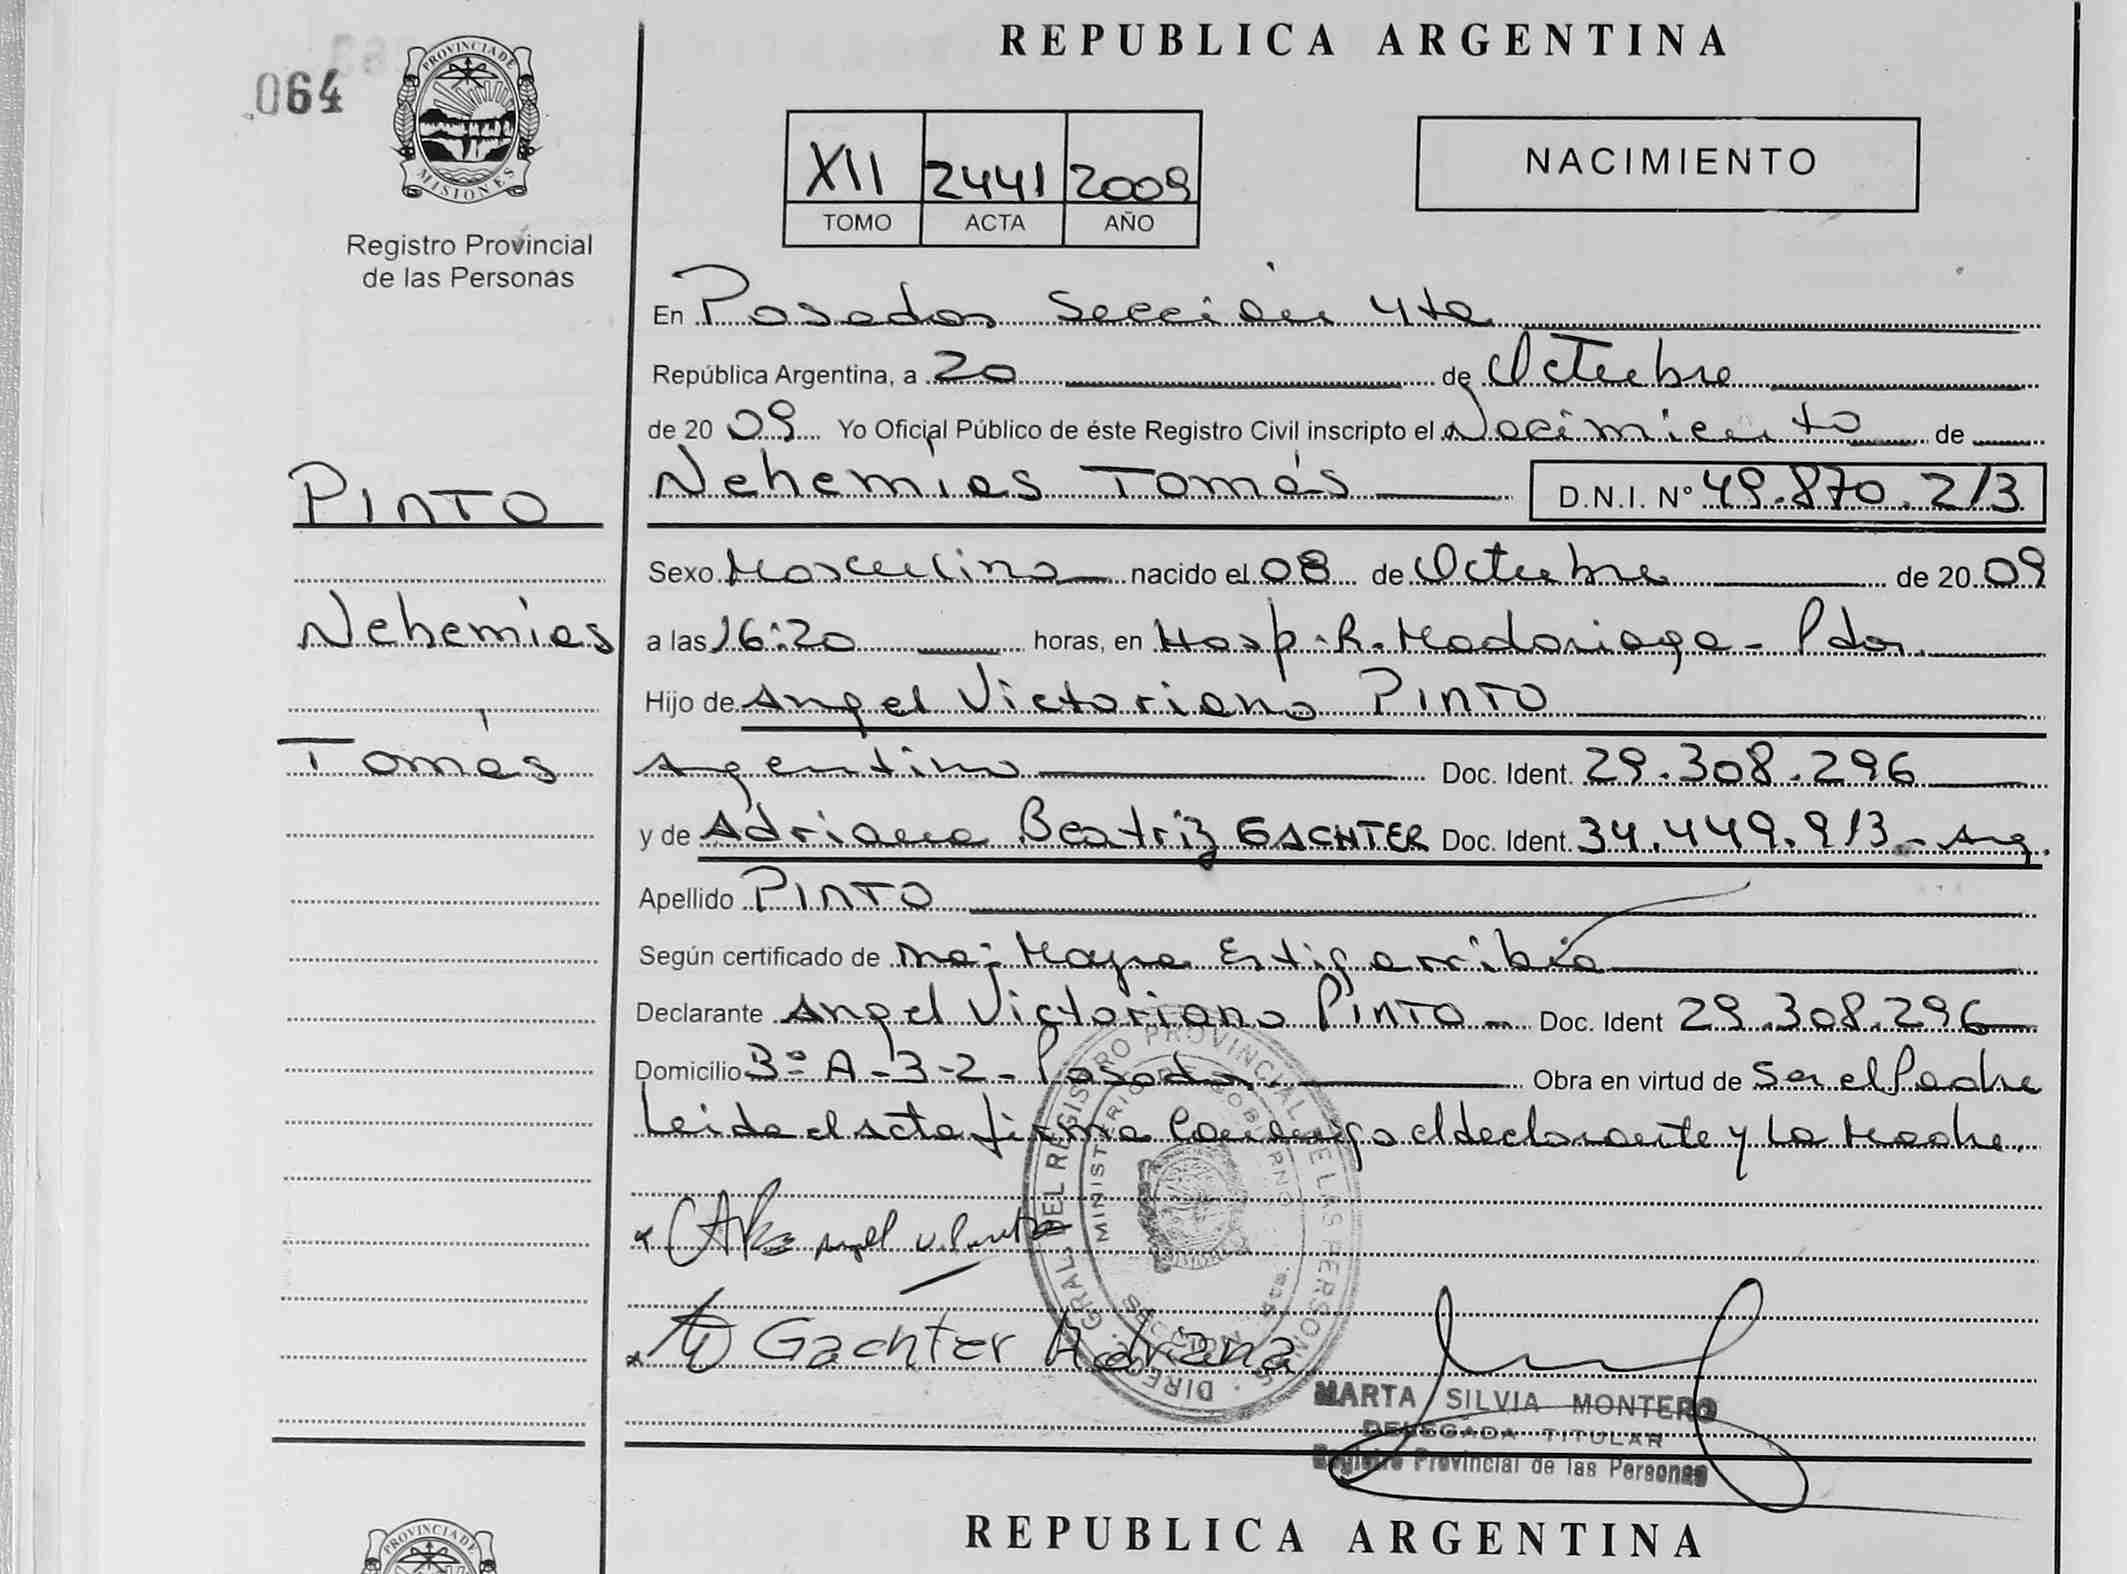 REPUBLICA ARGENTINA
064
PROVINCIA DE
MISIONES
Registro Provincial
de las Personas
NACIMIENTO
XII 2441 2009
TOMO ACTA AÑO
En Posadas Sección 4ta
República Argentina, a 20 de Octubre
de 20 09 Yo Oficial Público de éste Registro Civil inscripto el Nacimiento de
PINTO
Nehemías Tomás D.N.I. Nº 49.870.213
Sexo Masculino nacido el 08 de Octubre de 20 09
Nehemias
a las 16:20 horas, en Hosp. R. Madariaga - Pdas.
Hijo de Angel Victoriano PINTO
Tomás
Argentino Doc. Ident. 29.308.296
y de Adriana Beatriz GACHTER Doc. Ident. 34.449.913 - Arg.
Apellido PINTO
Según certificado de Mayra Estigarribia
Declarante Angel Victoriano PINTO - Doc. Ident 29.308.296
Domicilio Bº A-3-2- Posadas Obra en virtud de Ser el Padre
Leida el acta firma Conmigo el declarante y La Madre.
DIREC. GRAL. DEL REGISTRO PROVINCIAL DE LAS PERSONAS
MINISTERIO DE GOBIERNO
x Angel V. Pinto
x Gachter Adriana
MARTA SILVIA MONTERO
DELEGADA TITULAR
Registro Provincial de las Personas
REPUBLICA ARGENTINA
PROVINCIA DE